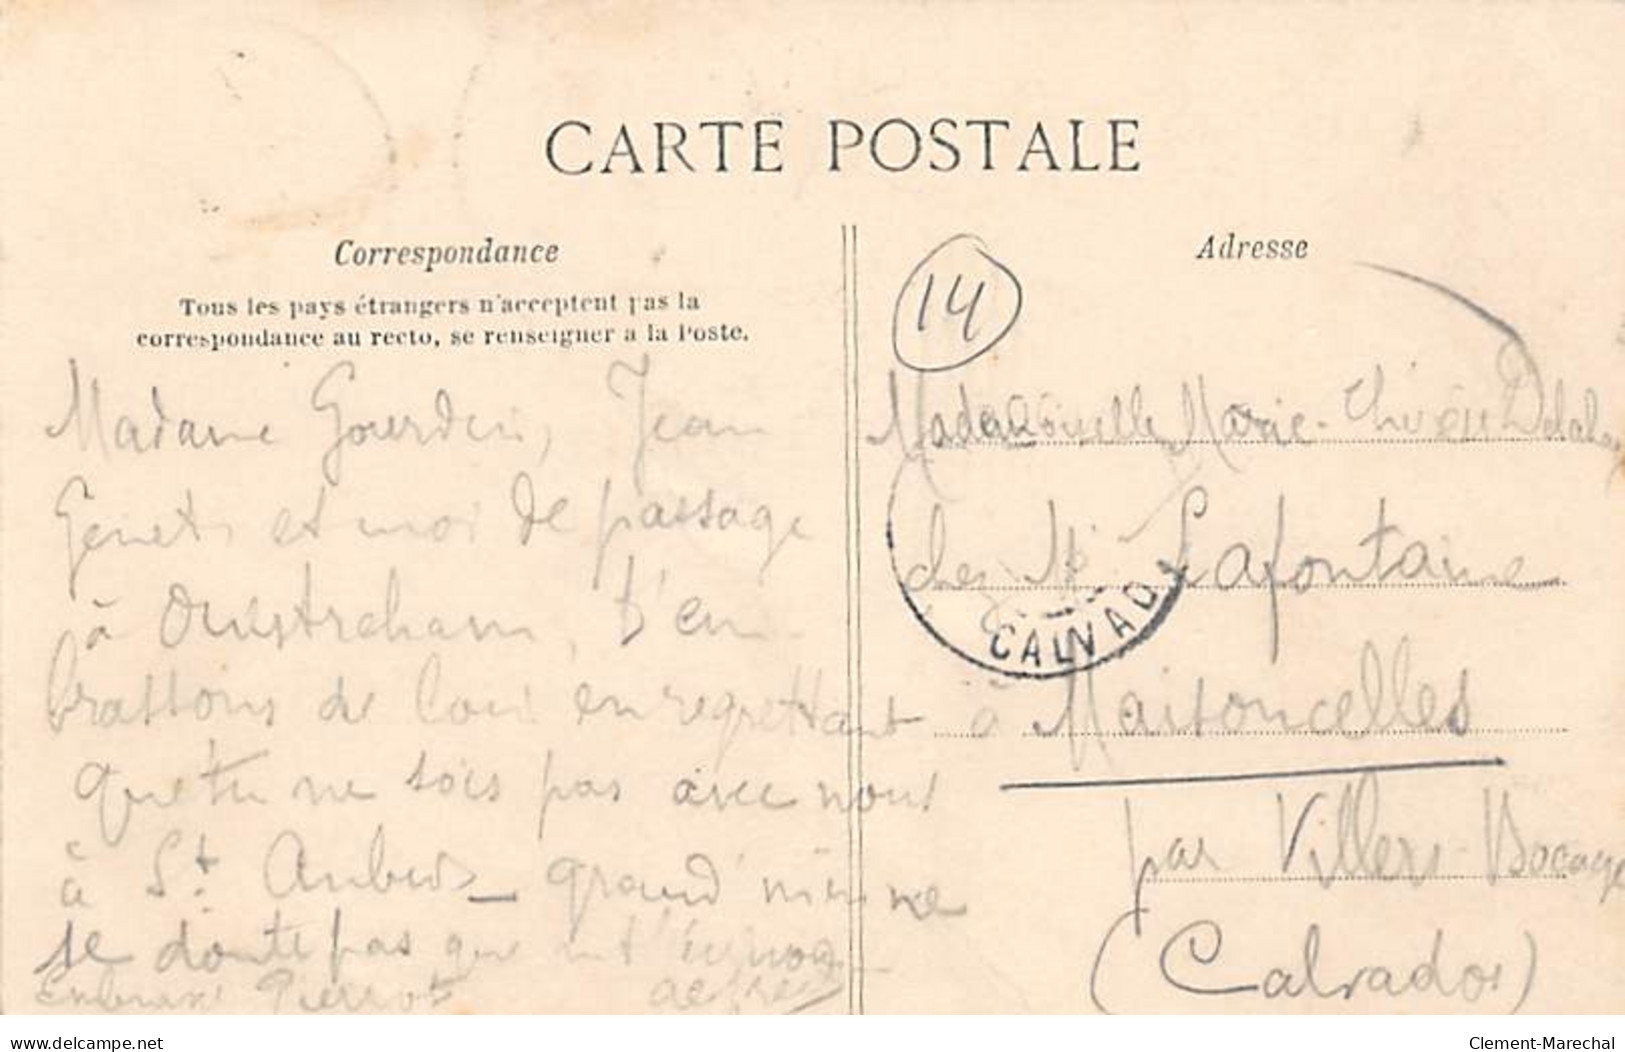 CARTE POSTALE
Correspondance
Tous les pays étrangers n'acceptent pas la
correspondance au recto, se renseigner a la Poste.
Madame Gourdin, Jean
Genet et moi de passage
à Ouistreham, t'em
brassons de loin en regrettant
que tu ne sois pas avec nous
à St. Aubin_ grand'mère ne
se doute pas que
Pierrot
Adresse
14
Mademoiselle Marie-
chez Mr Lafontaine
à Maisoncelles
par Villers-Bocage
(Calvados)
CALVADOS
delcampe.net
Clement-Marechal